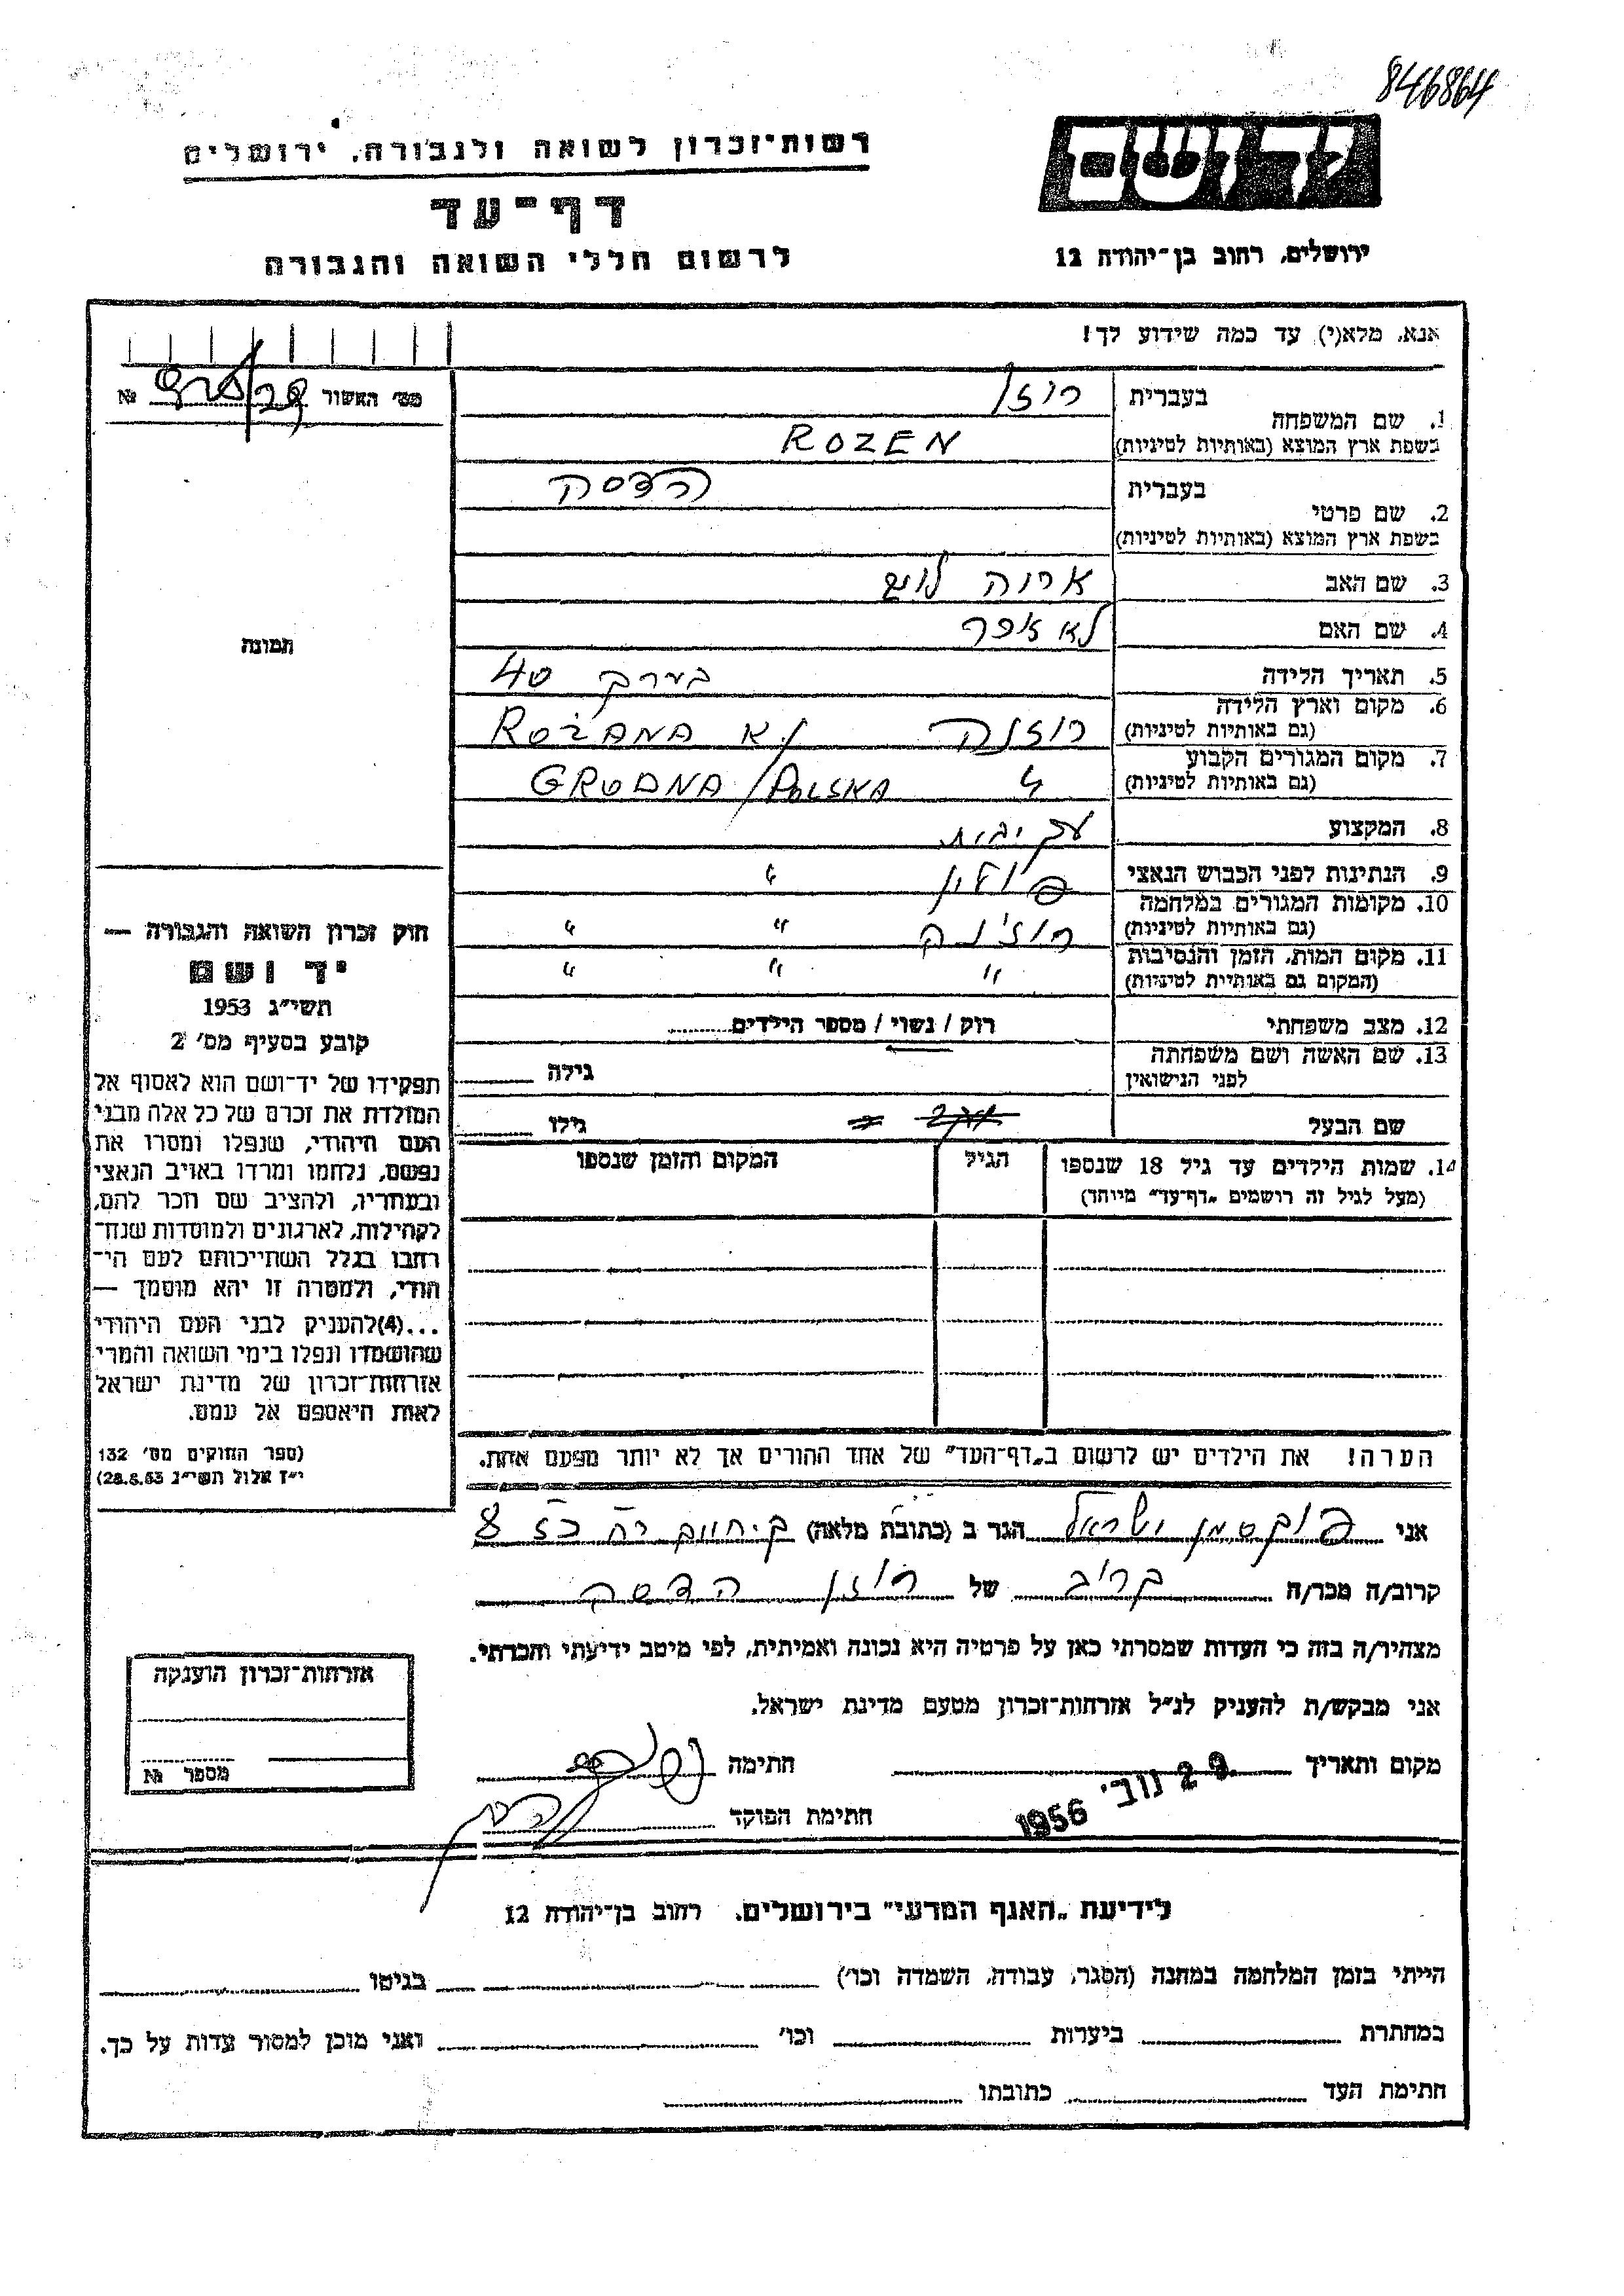 846864
רשות־זכרון לשואה ולגבורה, ירושלים
דף־עד
לרשום חללי השואה והגבורה
יד ושם
ירושלים, רחוב בן־יהודה 12
אנא, מלא(י) עד כמה שידוע לך!
מס׳ האשור №
1. שם המשפחה בעברית רוזן
בשפת ארץ המוצא (באותיות לטיניות) ROZEN
2. שם פרטי בעברית הדסה
בשפת ארץ המוצא (באותיות לטיניות)
3. שם האב אריה לוב
4. שם האם לא
5. תאריך הלידה בערך 40
6. מקום וארץ הלידה
(גם באותיות לטיניות) רוזנה ע״י ROŻANA
7. מקום המגורים הקבוע
(גם באותיות לטיניות) " GRODNA / POLSKA
8. המקצוע עק׳ בית
9. הנתינות לפני הכבוש הנאצי פולין "
10. מקומות המגורים במלחמה
(גם באותיות לטיניות) רוז׳נה " "
11. מקום המות, הזמן והנסיבות
(המקום גם באותיות לטיניות) " " "
12. מצב משפחתי רוק / נשוי / מספר הילדים
13. שם האשה ושם משפחתה
לפני הנישואין גילה
שם הבעל גילו
14. שמות הילדים עד גיל 18 שנספו הגיל המקום והזמן שנספו
(מעל לגיל זה רושמים „דף־עד״ מיוחד)
הערה! את הילדים יש לרשום ב„דף־העד״ של אחד ההורים אך לא יותר מפעם אחת.
תמונה
חוק זכרון השואה והגבורה —
יד ושם
תשי״ג 1953
קובע בסעיף מס׳ 2
תפקידו של יד־ושם הוא לאסוף אל
המולדת את זכרם של כל אלה מבני
העם היהודי, שנפלו ומסרו את
נפשם, נלחמו ומרדו באויב הנאצי
ובעוזריו, ולהציב שם וזכר להם,
לקהילות, לארגונים ולמוסדות שנח־
רבו בגלל השתייכותם לעם הי־
הודי, ולמטרה זו יהא מוסמך —
...(4) להעניק לבני העם היהודי
שהושמדו ונפלו בימי השואה והמרי
אזרחות־זכרון של מדינת ישראל
לאות היאספם אל עמם.
(ספר החוקים מס׳ 132
י״ז אלול תשי״ג 28.8.53)
אני פוקסמן ישראל הגר ב (כתובת מלאה) ק. חיים רח 8
קרוב/ה מכר/ה קרוב של רוזן הדסה
מצהיר/ה בזה כי העדות שמסרתי כאן על פרטיה היא נכונה ואמיתית, לפי מיטב ידיעתי והכרתי.
אני מבקש/ת להעניק לנ״ל אזרחות־זכרון מטעם מדינת ישראל.
מקום ותאריך 29 נוב׳ 1956 חתימה
חתימת הפוקד
אזרחות־זכרון הוענקה
מספר №
לידיעת „האגף המדעי״ בירושלים, רחוב בן־יהודה 12
הייתי בזמן המלחמה במחנה (הסגר, עבודה, השמדה וכו׳) בגיטו
במחתרת ביערות וכו׳ ואני מוכן למסור עדות על כך.
חתימת העד כתובתו